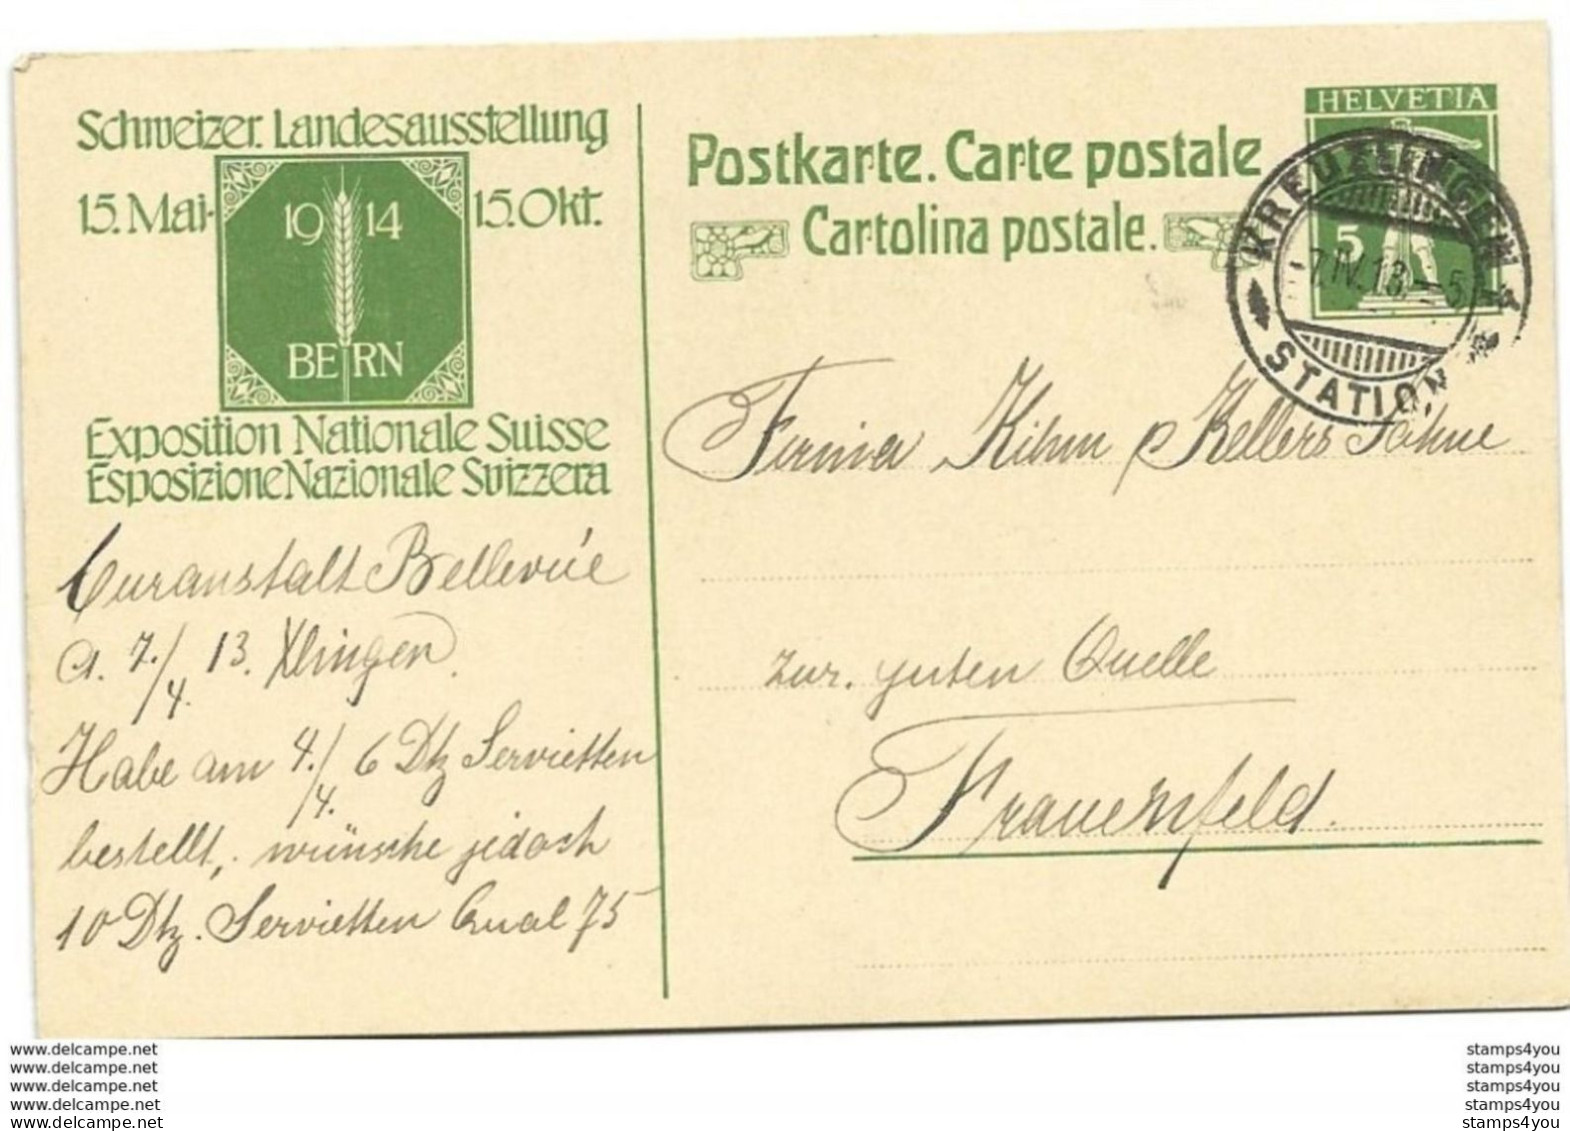 Schweizer. Landesausstellung
15. Mai - 15. Okt.
19 14
BERN
Exposition Nationale Suisse
Esposizione Nazionale Svizzera
Postkarte. Carte postale
Cartolina postale.
HELVETIA
5
KREUZLINGEN
7.IV.13.-5
STATION
Firma Kihm Kellers Söhne
zur. guten Quelle
Frauenfeld.
Curanstalt Bellevue
d. 7./4. 13. Xlingen.
Habe am 4./4. 6 Dtz Servietten
bestellt, wünsche jedoch
10 Dtz. Servietten Qual 75
www.delcampe.net
www.delcampe.net
www.delcampe.net
www.delcampe.net
www.delcampe.net
stamps4you
stamps4you
stamps4you
stamps4you
stamps4you